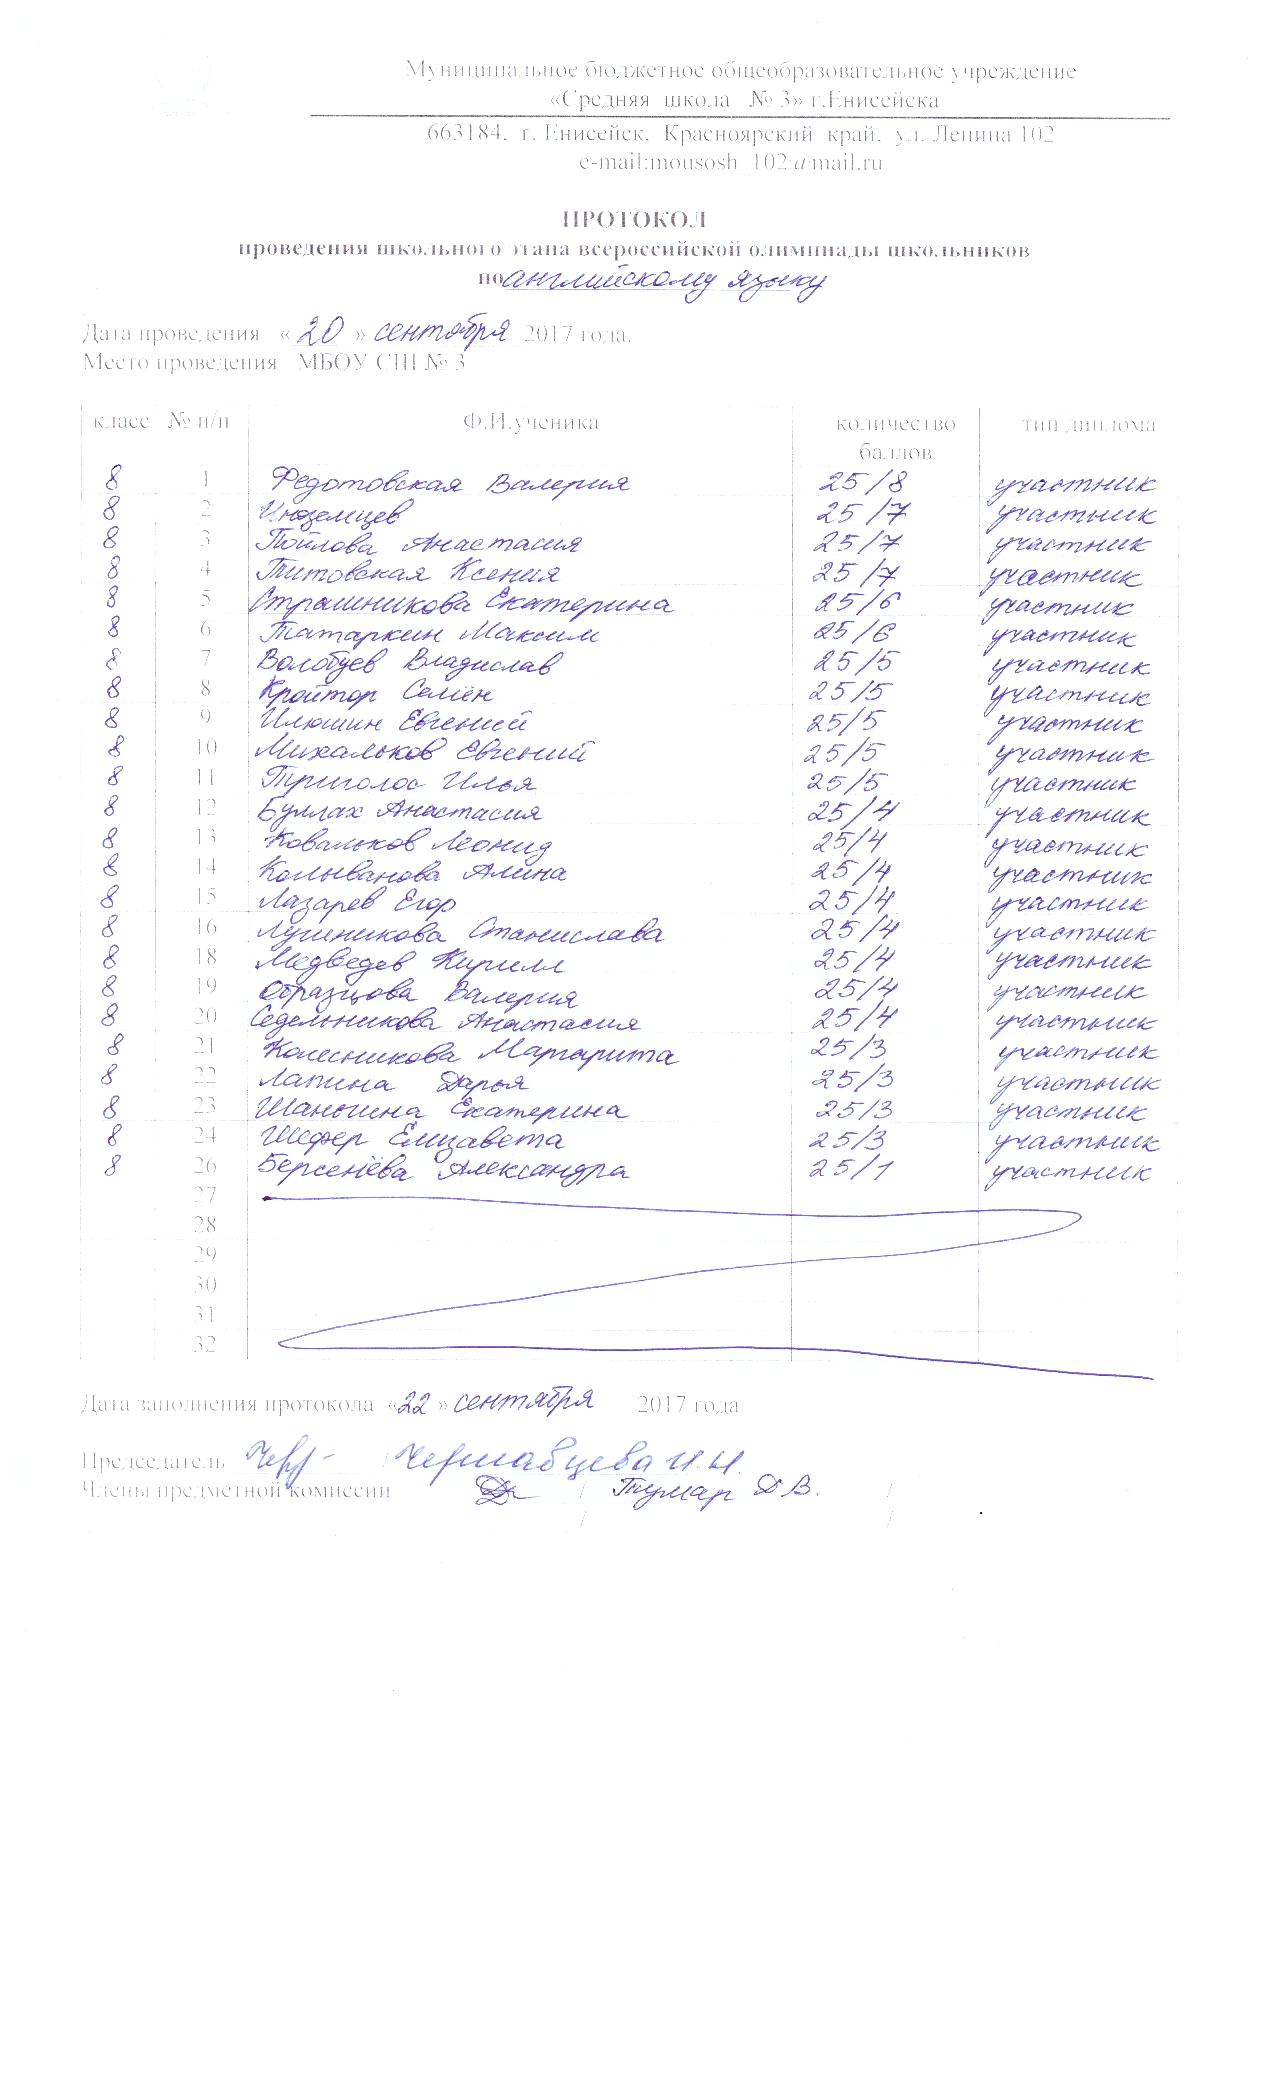 Муниципальное бюджетное общеобразовательное учреждение
«Средняя школа № 3» г.Енисейска
663184, г. Енисейск, Красноярский край, ул. Ленина 102
e-mail:mousosh_102@mail.ru
ПРОТОКОЛ
проведения школьного этапа всероссийской олимпиады школьников
по английскому языку
Дата проведения « 20 » сентября 2017 года.
Место проведения МБОУ СШ № 3
класс № п/п Ф.И.ученика количество баллов тип диплома
8 1 Федотовская Валерия 25/8 участник
8 2 Иноземцев 25/7 участник
8 3 Пойлова Анастасия 25/7 участник
8 4 Титовская Ксения 25/7 участник
8 5 Страшникова Екатерина 25/6 участник
8 6 Татаркин Максим 25/6 участник
8 7 Волобуев Владислав 25/5 участник
8 8 Кройтор Семён 25/5 участник
8 9 Илюшин Евгений 25/5 участник
8 10 Михальков Евгений 25/5 участник
8 11 Триголос Илья 25/5 участник
8 12 Буллах Анастасия 25/4 участник
8 13 Ковальков Леонид 25/4 участник
8 14 Колыванова Алина 25/4 участник
8 15 Лазарев Егор 25/4 участник
8 16 Лушникова Станислава 25/4 участник
8 18 Медведев Кирилл 25/4 участник
8 19 Образцова Валерия 25/4 участник
8 20 Седельникова Анастасия 25/4 участник
8 21 Колесникова Маргарита 25/3 участник
8 22 Лапина Дарья 25/3 участник
8 23 Шаньгина Екатерина 25/3 участник
8 24 Шефер Елизавета 25/3 участник
8 26 Берсенёва Александра 25/1 участник
27
28
29
30
31
32
Дата заполнения протокола «22 » сентября 2017 года
Председатель / И.Н.
Члены предметной комиссии / Тумар Д.В. /
/ /